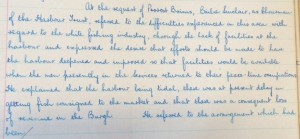 At the request of Provost Brown, Bailie Sinclair, as Chairman
of the Harbour Trust, referred to the difficulties experienced in this area with
regard to the white fishing industry, through the lack of facilities at the
harbour and expressed the view that efforts should be made to have
the harbour deepened and improved so that facilities would be available
when the men presently in the Services returned to their peace time occupations
He explained that the harbour being tidal, there was at present delay in
getting fish consigned to the market and that there was a consequent loss
of revenue in the Burgh. He referred to the arrangement which had
been